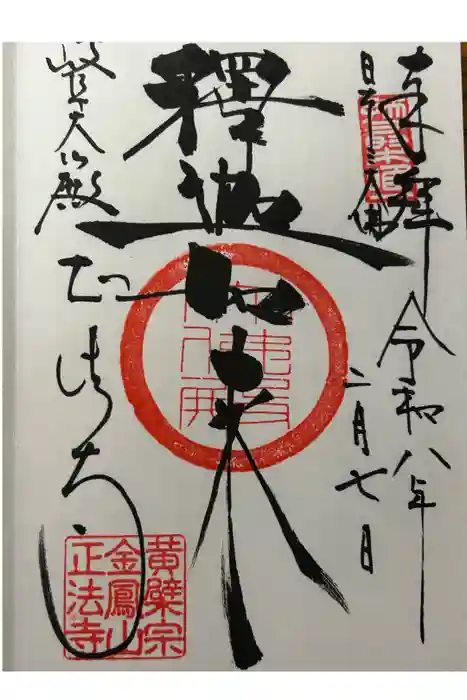 奉拝
日本三大佛
令和八年
二月七日
釋迦如来
岐阜大仏殿
正法寺
黄檗宗
金鳳山
正法寺